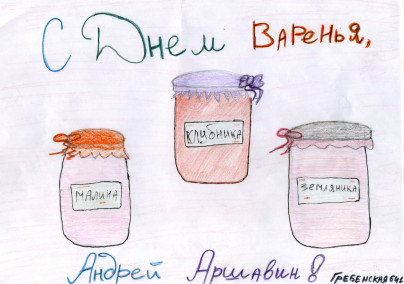 С Днем Варенья,
клубника
малина
земляника
Андрей Аршавин 8
Гребенская